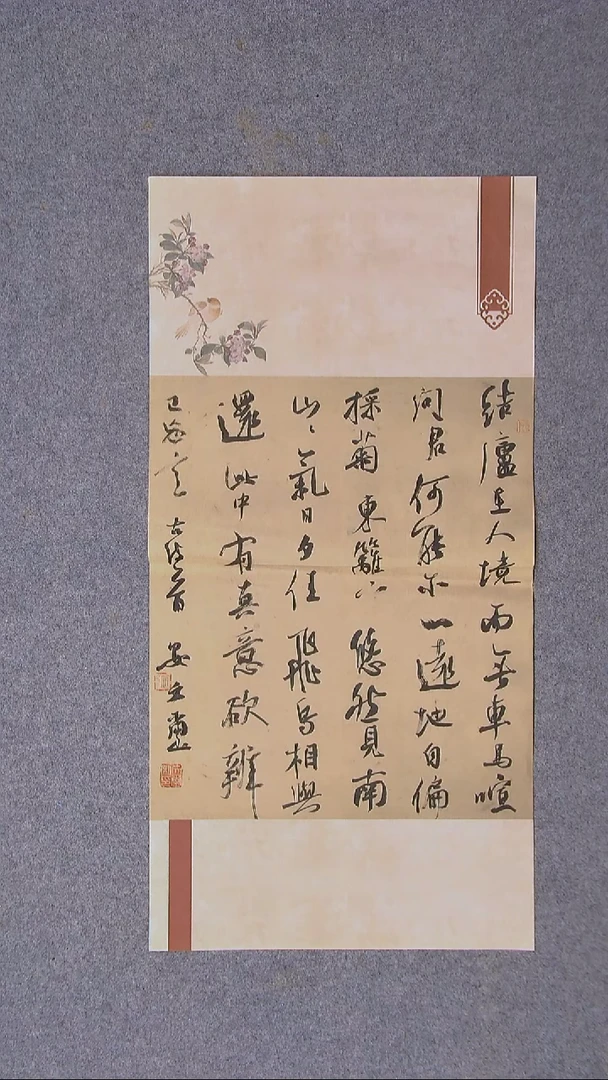 結廬在人境而無車馬喧
問君何能尔心遠地自偏
採菊東籬下悠然見南
山〻氣日夕佳飛鳥相與
還此中有真意欲辨
已忘言 古诗一首